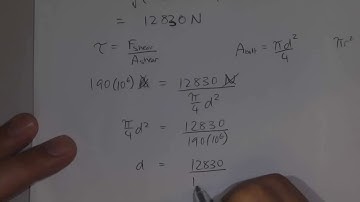 = 12830 N
τ = F shear / A shear
A bolt = πd² / 4
190(10⁶) N = 12830 N / π/4 d²
π/4 d² = 12830 / 190(10⁶)
d = 12830 / 1